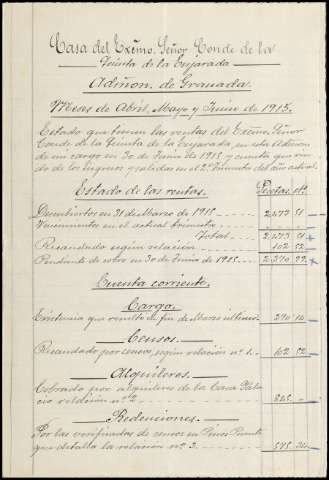 Casa del Excmo. Señor Conde de la
Quinta de la Enjarada
Admon. de Granada.
Meses de Abril, Mayo y Junio de 1915.
Estado que tienen las rentas del Excmo. Señor
Conde de la Quinta de la Enjarada, en esta Admon
de mi cargo en 30 de Junio de 1915 y cuenta que rin-
do de los ingresos y salidas en el 2º Trimestre del año actual.
Estado de las rentas. Pesetas cts.
Descubiertos en 31 de Marzo de 1915 2,473 51
Vencimientos en el actual trimestre
Total 2,473 51
Recaudado según relación 102 52
Pendiente de cobro en 30 de Junio de 1915 2,370 99
Cuenta corriente.
Cargo.
Existencia que resultó en fin de Marzo último 290 10
Censos.
Recaudado por censos según relación nº 1. 102 52
Alquileres.
Cobrado por alquileres de la Casa Pala-
cio relación nº 2 825
Redenciones.
Por las verificadas de censos en Pinos Puente
que detalla la relación nº 3.